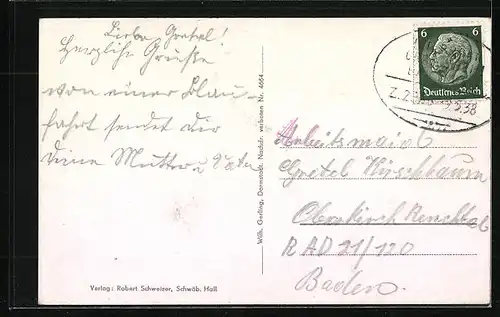 Liebe Gretel!
Herzliche Grüße
von einer Blau-
fahrt sendet dir
deine Mutter u. Vater
Wilh. Gerling, Darmstadt. Nachdr. verboten Nr. 4664
Verlag: Robert Schweizer, Schwäb. Hall
6 6
Deutsches Reich
Z.2
5.38
Arbeitsmaid
Gretel Hirschbaum
Oberkirch Renchtal
R A D 21/120
Baden.